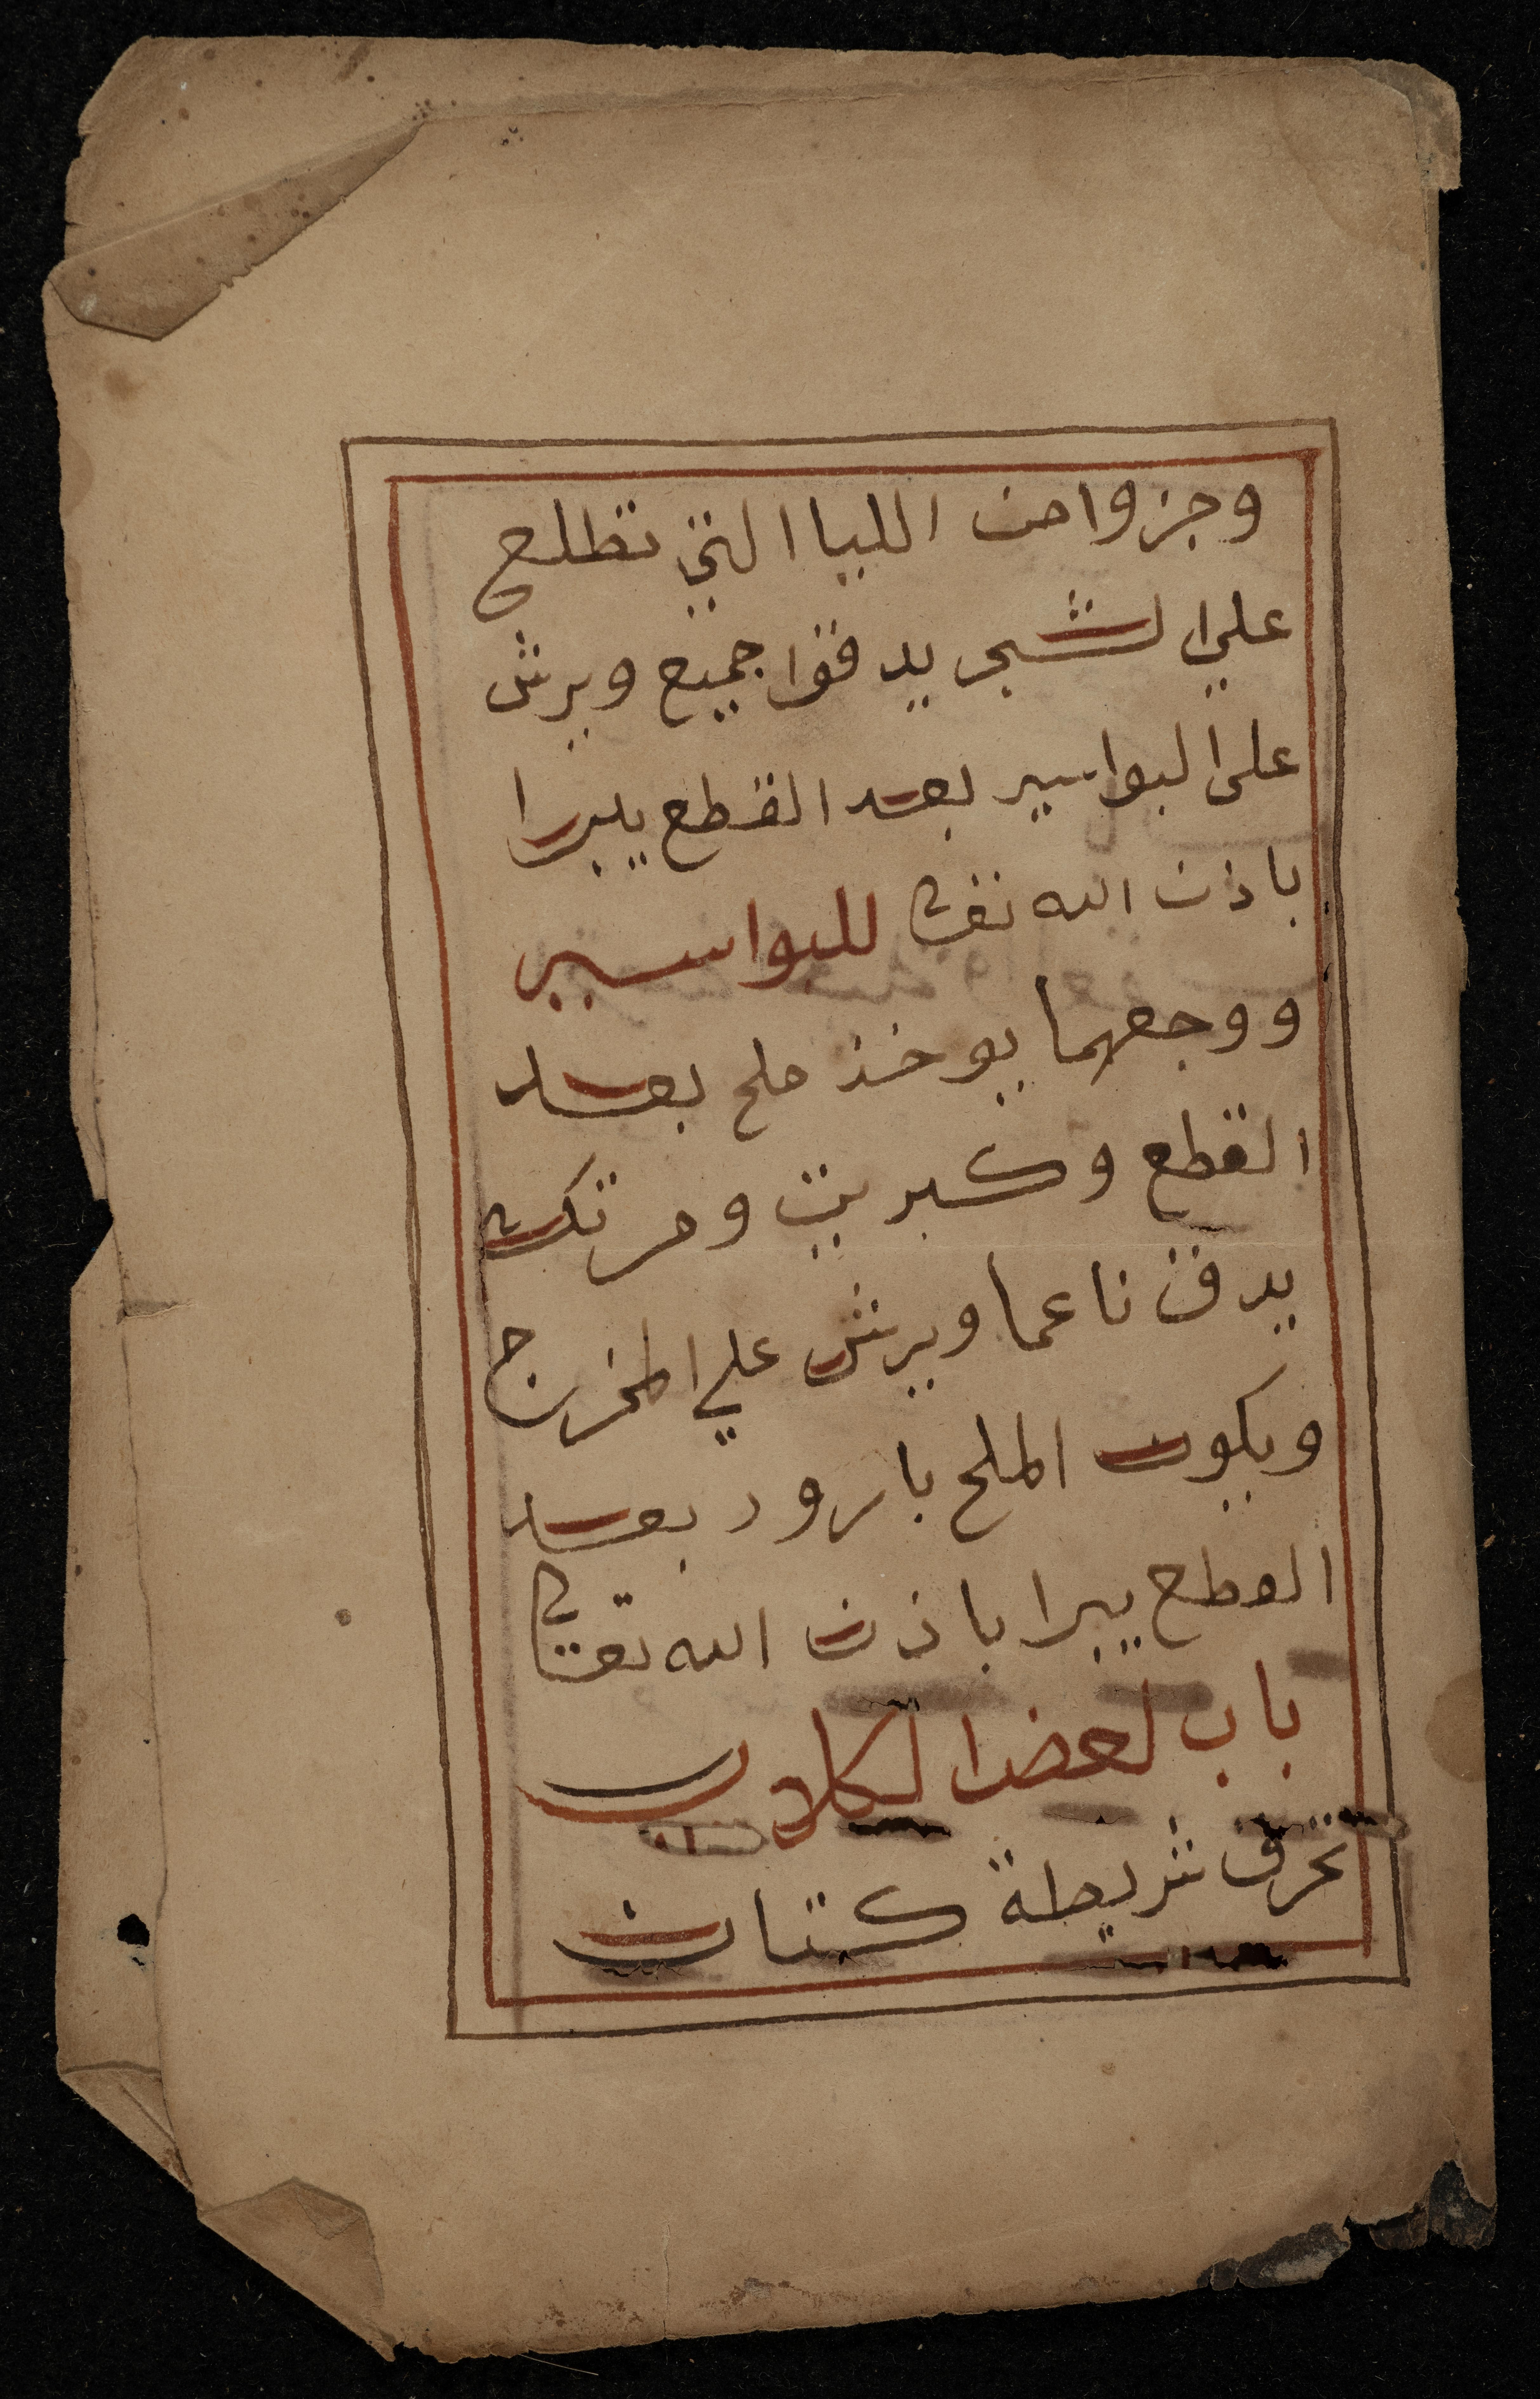 وجزوا من الليا التي تطلع
علي الشجر يدقوا جميع ويرش
على البواسير بعد القطع يبرا
باذن الله تعالى للبواسير
ووجعهما يوخذ ملح بعد
القطع وكبريت ومرتك
يدق ناعما ويرش علي المخرج
ويكون الملح بارود بعد
القطع يبرا باذن الله تعالى
باب لعض الكلاب
تحرق شريطة كتان